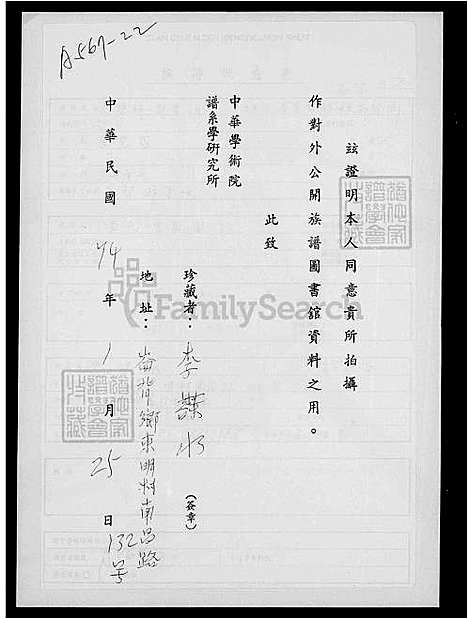 A567-22
茲證明本人同意貴所拍攝
作對外公開族譜圖書舘資料之用。
此致
中華學術院
譜系學研究所
珍藏者：李 水 (簽章)
地址：崙背鄉東明村南昌路
132号
中華民國 74 年 1 月 25 日
FamilySearch